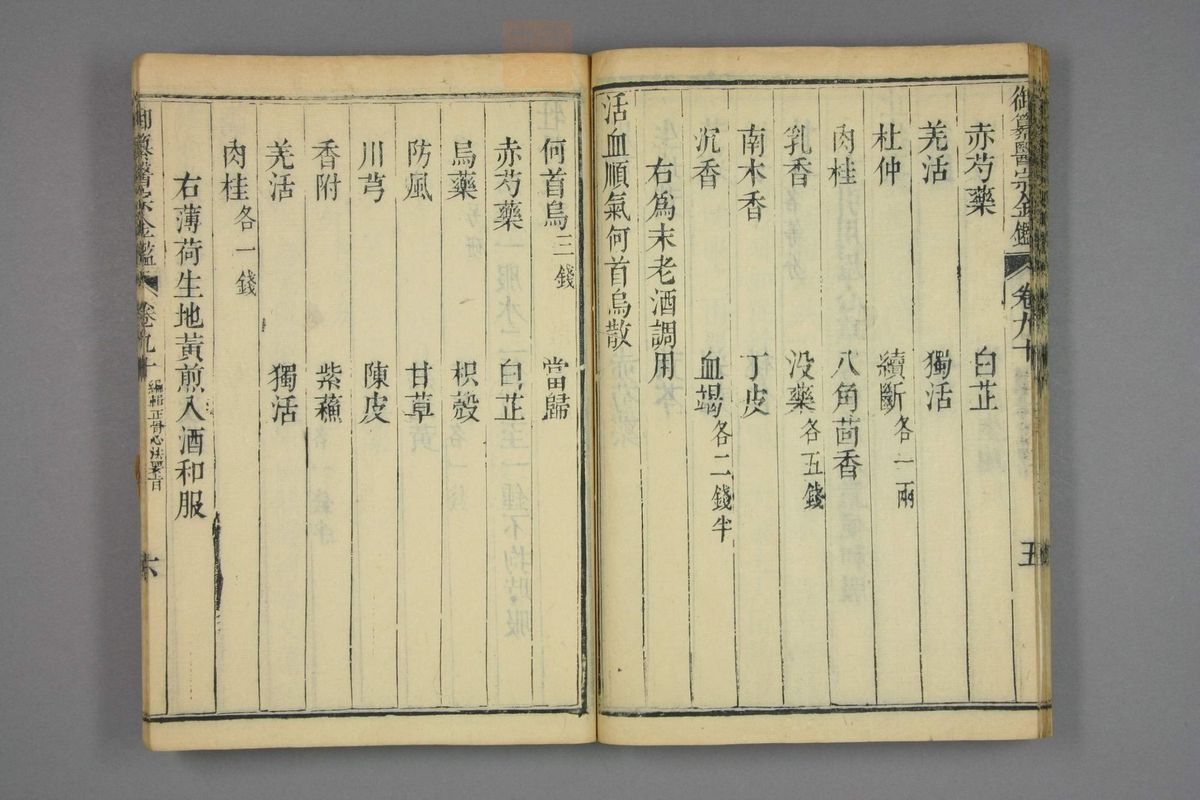 御纂醫宗金鑑 卷九十 五
赤芍藥 白芷
羌活 獨活
杜仲 續斷各一兩
肉桂 八角茴香
乳香 没藥各五錢
南木香 丁皮
沉香 血竭各二錢半
右為末老酒調用
活血順氣何首烏散
何首烏三錢 當歸
赤芍藥 白芷
烏藥 枳殼
防風 甘草
川芎 陳皮
香附 紫蘇
羌活 獨活
肉桂各一錢
右薄荷生地黃煎入酒和服
御纂醫宗金鑑 卷九十 編輯正骨心法要旨 六